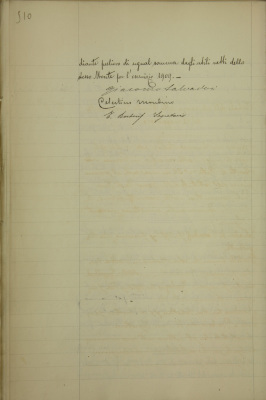 310
diante prelievo di egual somma dagli utili netti dello
stesso Monte per l'esercizio 1909. —
Giacomo Salvadori
Celestino
Segretario